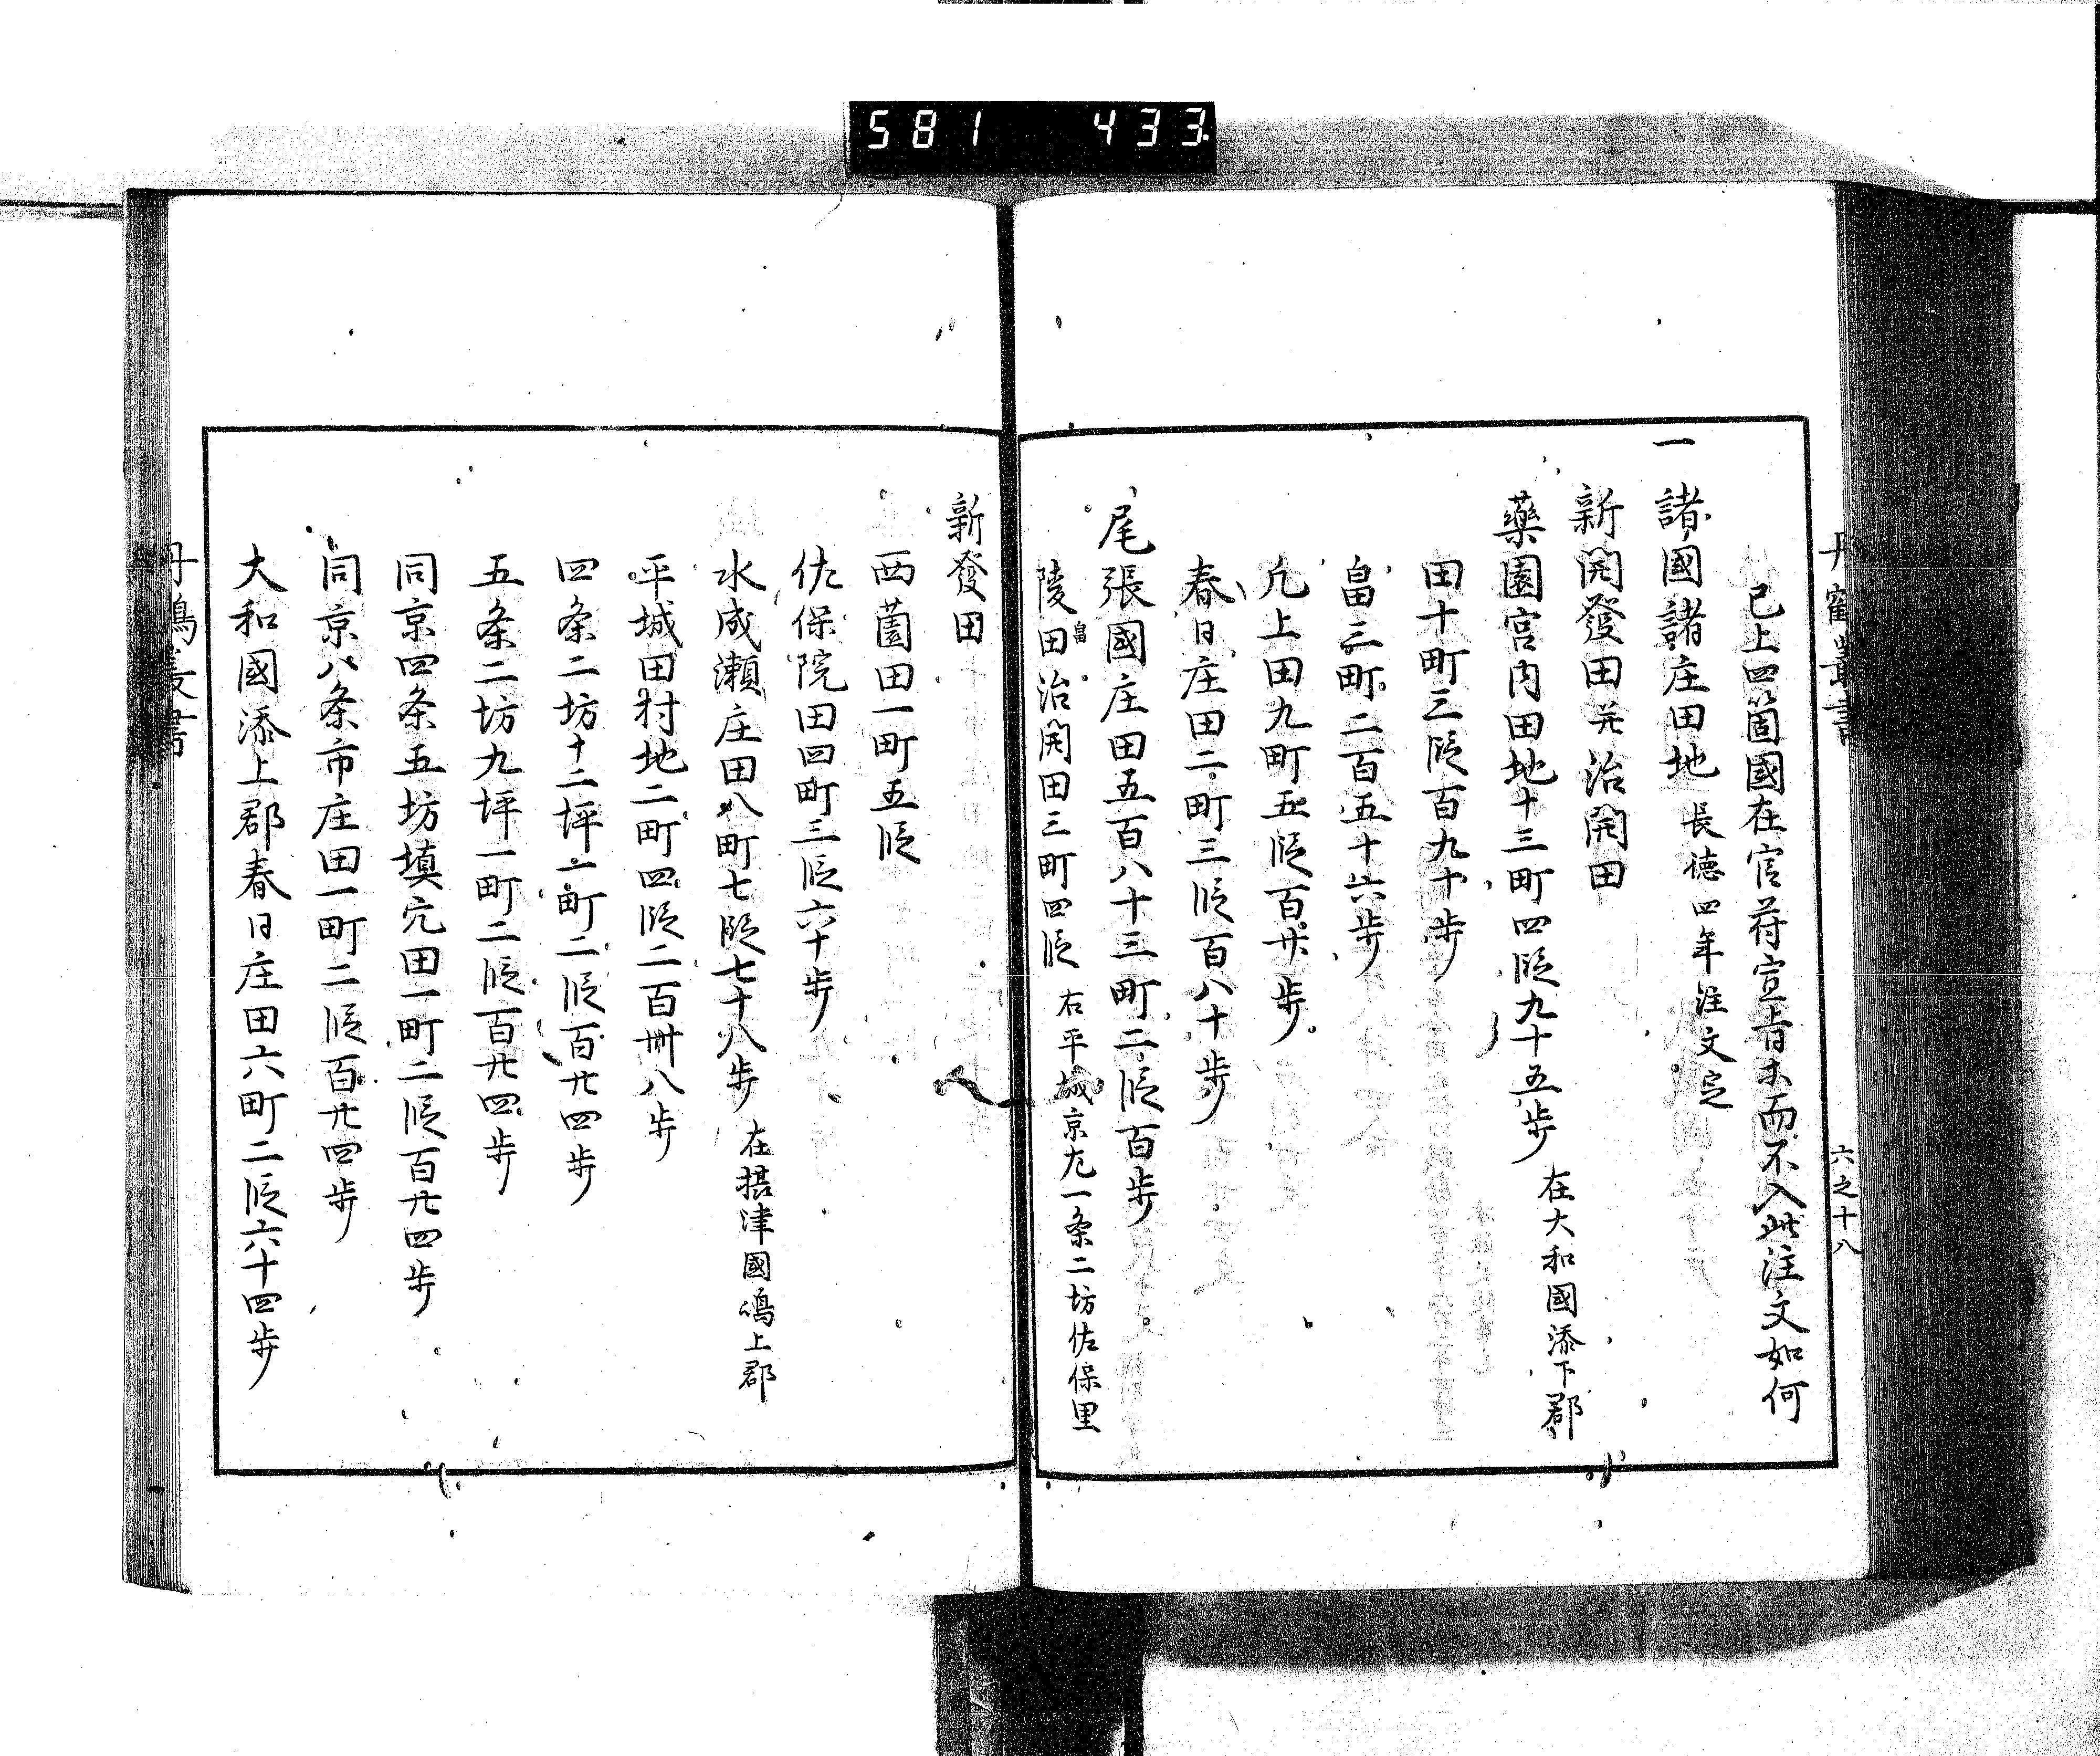 581 433
丹鶴叢書
六之十八
已上四箇國在官苻宣旨木而不入此注文如何
一 諸國諸庄田地 長德四年注文定
新開發田并治開田
藥園宮内田地十三町四段九十五歩 在大和國添下郡
田十町三段百九十歩
畠三町二百五十六歩
九上田九町五段百廾歩
春日庄田二町三段百八十歩
尾張國庄田五百八十三町二段百歩
陵田畠治開田三町四段 右平城京九一条二坊佐保里
新發田
西薗田一町五段
佐保院田四町三段六十歩
水成瀬庄田八町七段七十八歩 在摂津國嶋上郡
平城田村地二町四段二百卌八歩
四条二坊十二坪一町二段百廿四歩
五条二坊九坪一町二段百廿四歩
同京四条五坊填穴田一町二段百廿四歩
同京八条市庄田一町二段百廿四歩
大和國添上郡春日庄田六町二段六十四歩
丹鶴叢書